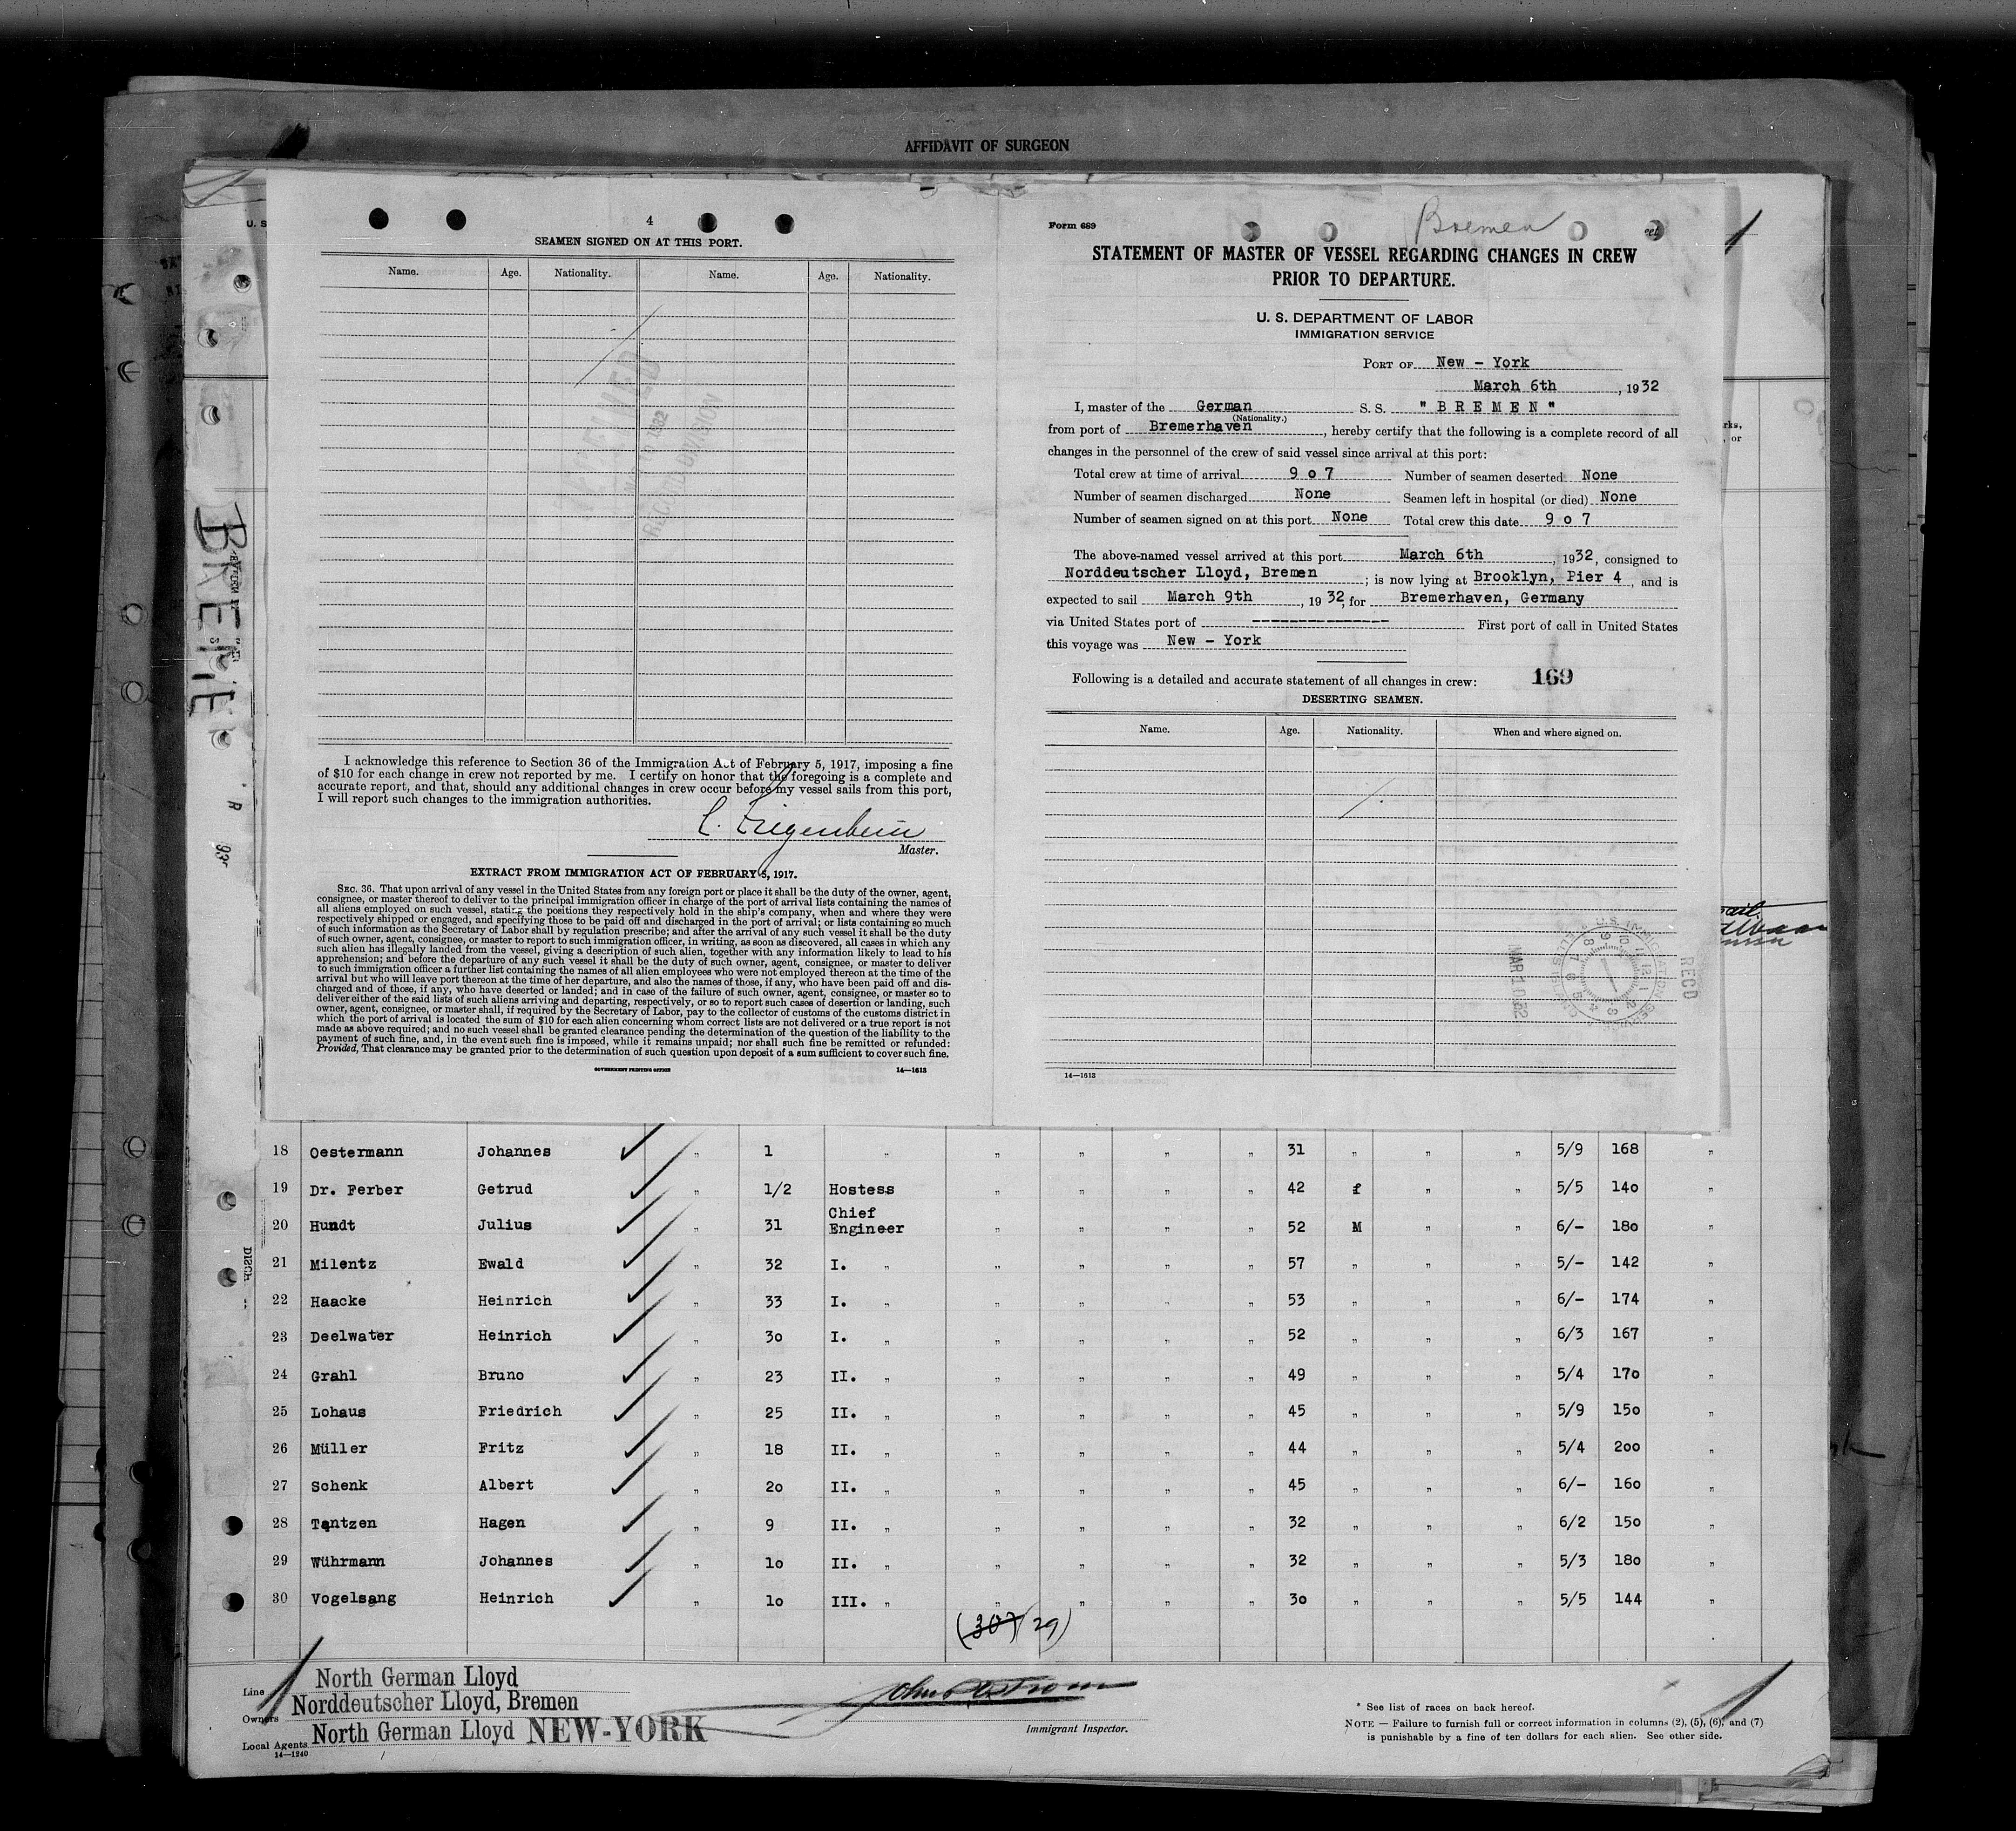 AFFIDAVIT OF SURGEON
U. S
4
SEAMEN SIGNED ON AT THIS PORT.
Name. Age. Nationality. Name. Age. Nationality.
RECORD DIVISION
I acknowledge this reference to Section 36 of the Immigration Act of February 5, 1917, imposing a fine
of $10 for each change in crew not reported by me. I certify on honor that the foregoing is a complete and
accurate report, and that, should any additional changes in crew occur before my vessel sails from this port,
I will report such changes to the immigration authorities.
Master.
EXTRACT FROM IMMIGRATION ACT OF FEBRUARY 5, 1917.
SEC. 36. That upon arrival of any vessel in the United States from any foreign port or place it shall be the duty of the owner, agent,
consignee, or master thereof to deliver to the principal immigration officer in charge of the port of arrival lists containing the names of
all aliens employed on such vessel, stating the positions they respectively hold in the ship's company, when and where they were
respectively shipped or engaged, and specifying those to be paid off and discharged in the port of arrival; or lists containing so much
of such information as the Secretary of Labor shall by regulation prescribe; and after the arrival of any such vessel it shall be the duty
of such owner, agent, consignee, or master to report to such immigration officer, in writing, as soon as discovered, all cases in which any
such alien has illegally landed from the vessel, giving a description of such alien, together with any information likely to lead to his
apprehension; and before the departure of any such vessel it shall be the duty of such owner, agent, consignee, or master to deliver
to such immigration officer a further list containing the names of all alien employees who were not employed thereon at the time of the
arrival but who will leave port thereon at the time of her departure, and also the names of those, if any, who have been paid off and dis-
charged and of those, if any, who have deserted or landed; and in case of the failure of such owner, agent, consignee, or master so to
deliver either of the said lists of such aliens arriving and departing, respectively, or so to report such cases of desertion or landing, such
owner, agent, consignee, or master shall, if required by the Secretary of Labor, pay to the collector of customs of the customs district in
which the port of arrival is located the sum of $10 for each alien concerning whom correct lists are not delivered or a true report is not
made as above required; and no such vessel shall be granted clearance pending the determination of the question of the liability to the
payment of such fine, and, in the event such fine is imposed, while it remains unpaid; nor shall such fine be remitted or refunded:
Provided, That clearance may be granted prior to the determination of such question upon deposit of a sum sufficient to cover such fine.
GOVERNMENT PRINTING OFFICE 14—1613
Form 689 Bremen
STATEMENT OF MASTER OF VESSEL REGARDING CHANGES IN CREW
PRIOR TO DEPARTURE.
U. S. DEPARTMENT OF LABOR
IMMIGRATION SERVICE
PORT OF New - York
March 6th, 1932
I, master of the German S. S. "BREMEN"
(Nationality.)
from port of Bremerhaven, hereby certify that the following is a complete record of all
changes in the personnel of the crew of said vessel since arrival at this port:
Total crew at time of arrival 9o7 Number of seamen deserted None
Number of seamen discharged None Seamen left in hospital (or died) None
Number of seamen signed on at this port None Total crew this date 9o7
The above-named vessel arrived at this port March 6th, 1932, consigned to
Norddeutscher Lloyd, Bremen; is now lying at Brooklyn, Pier 4, and is
expected to sail March 9th, 1932, for Bremerhaven, Germany
via United States port of -------------- First port of call in United States
this voyage was New - York
Following is a detailed and accurate statement of all changes in crew: 169
DESERTING SEAMEN.
Name. Age. Nationality. When and where signed on.
U.S. IMMIGRATION SERVICE
MAR 10 32
REC'D
14—1613
18 Oestermann Johannes " 1 " " " " " 31 " " " 5/9 168 "
19 Dr. Ferber Getrud " 1/2 Hostess " " " " 42 f " " 5/5 140 "
20 Hundt Julius " 31 Chief Engineer " " " " 52 M " " 6/- 18o "
21 Milentz Ewald " 32 I. " " " " " 57 " " " 5/- 142 "
22 Haacke Heinrich " 33 I. " " " " " 53 " " " 6/- 174 "
23 Deelwater Heinrich " 3o I. " " " " " 52 " " " 6/3 167 "
24 Grahl Bruno " 23 II. " " " " " 49 " " " 5/4 17o "
25 Lohaus Friedrich " 25 II. " " " " " 45 " " " 5/9 15o "
26 Müller Fritz " 18 II. " " " " " 44 " " " 5/4 2oo "
27 Schenk Albert " 2o II. " " " " " 45 " " " 6/- 16o "
28 Tantzen Hagen " 9 II. " " " " " 32 " " " 6/2 15o "
29 Wührmann Johannes " 1o II. " " " " " 32 " " " 5/3 18o "
30 Vogelsang Heinrich " 1o III. " " " " " 3o " " " 5/5 144 "
(30) 29)
Line North German Lloyd
Owners Norddeutscher Lloyd, Bremen
Local Agents North German Lloyd NEW-YORK
14—1240
Immigrant Inspector.
* See list of races on back hereof.
NOTE — Failure to furnish full or correct information in columns (2), (5), (6), and (7)
is punishable by a fine of ten dollars for each alien. See other side.